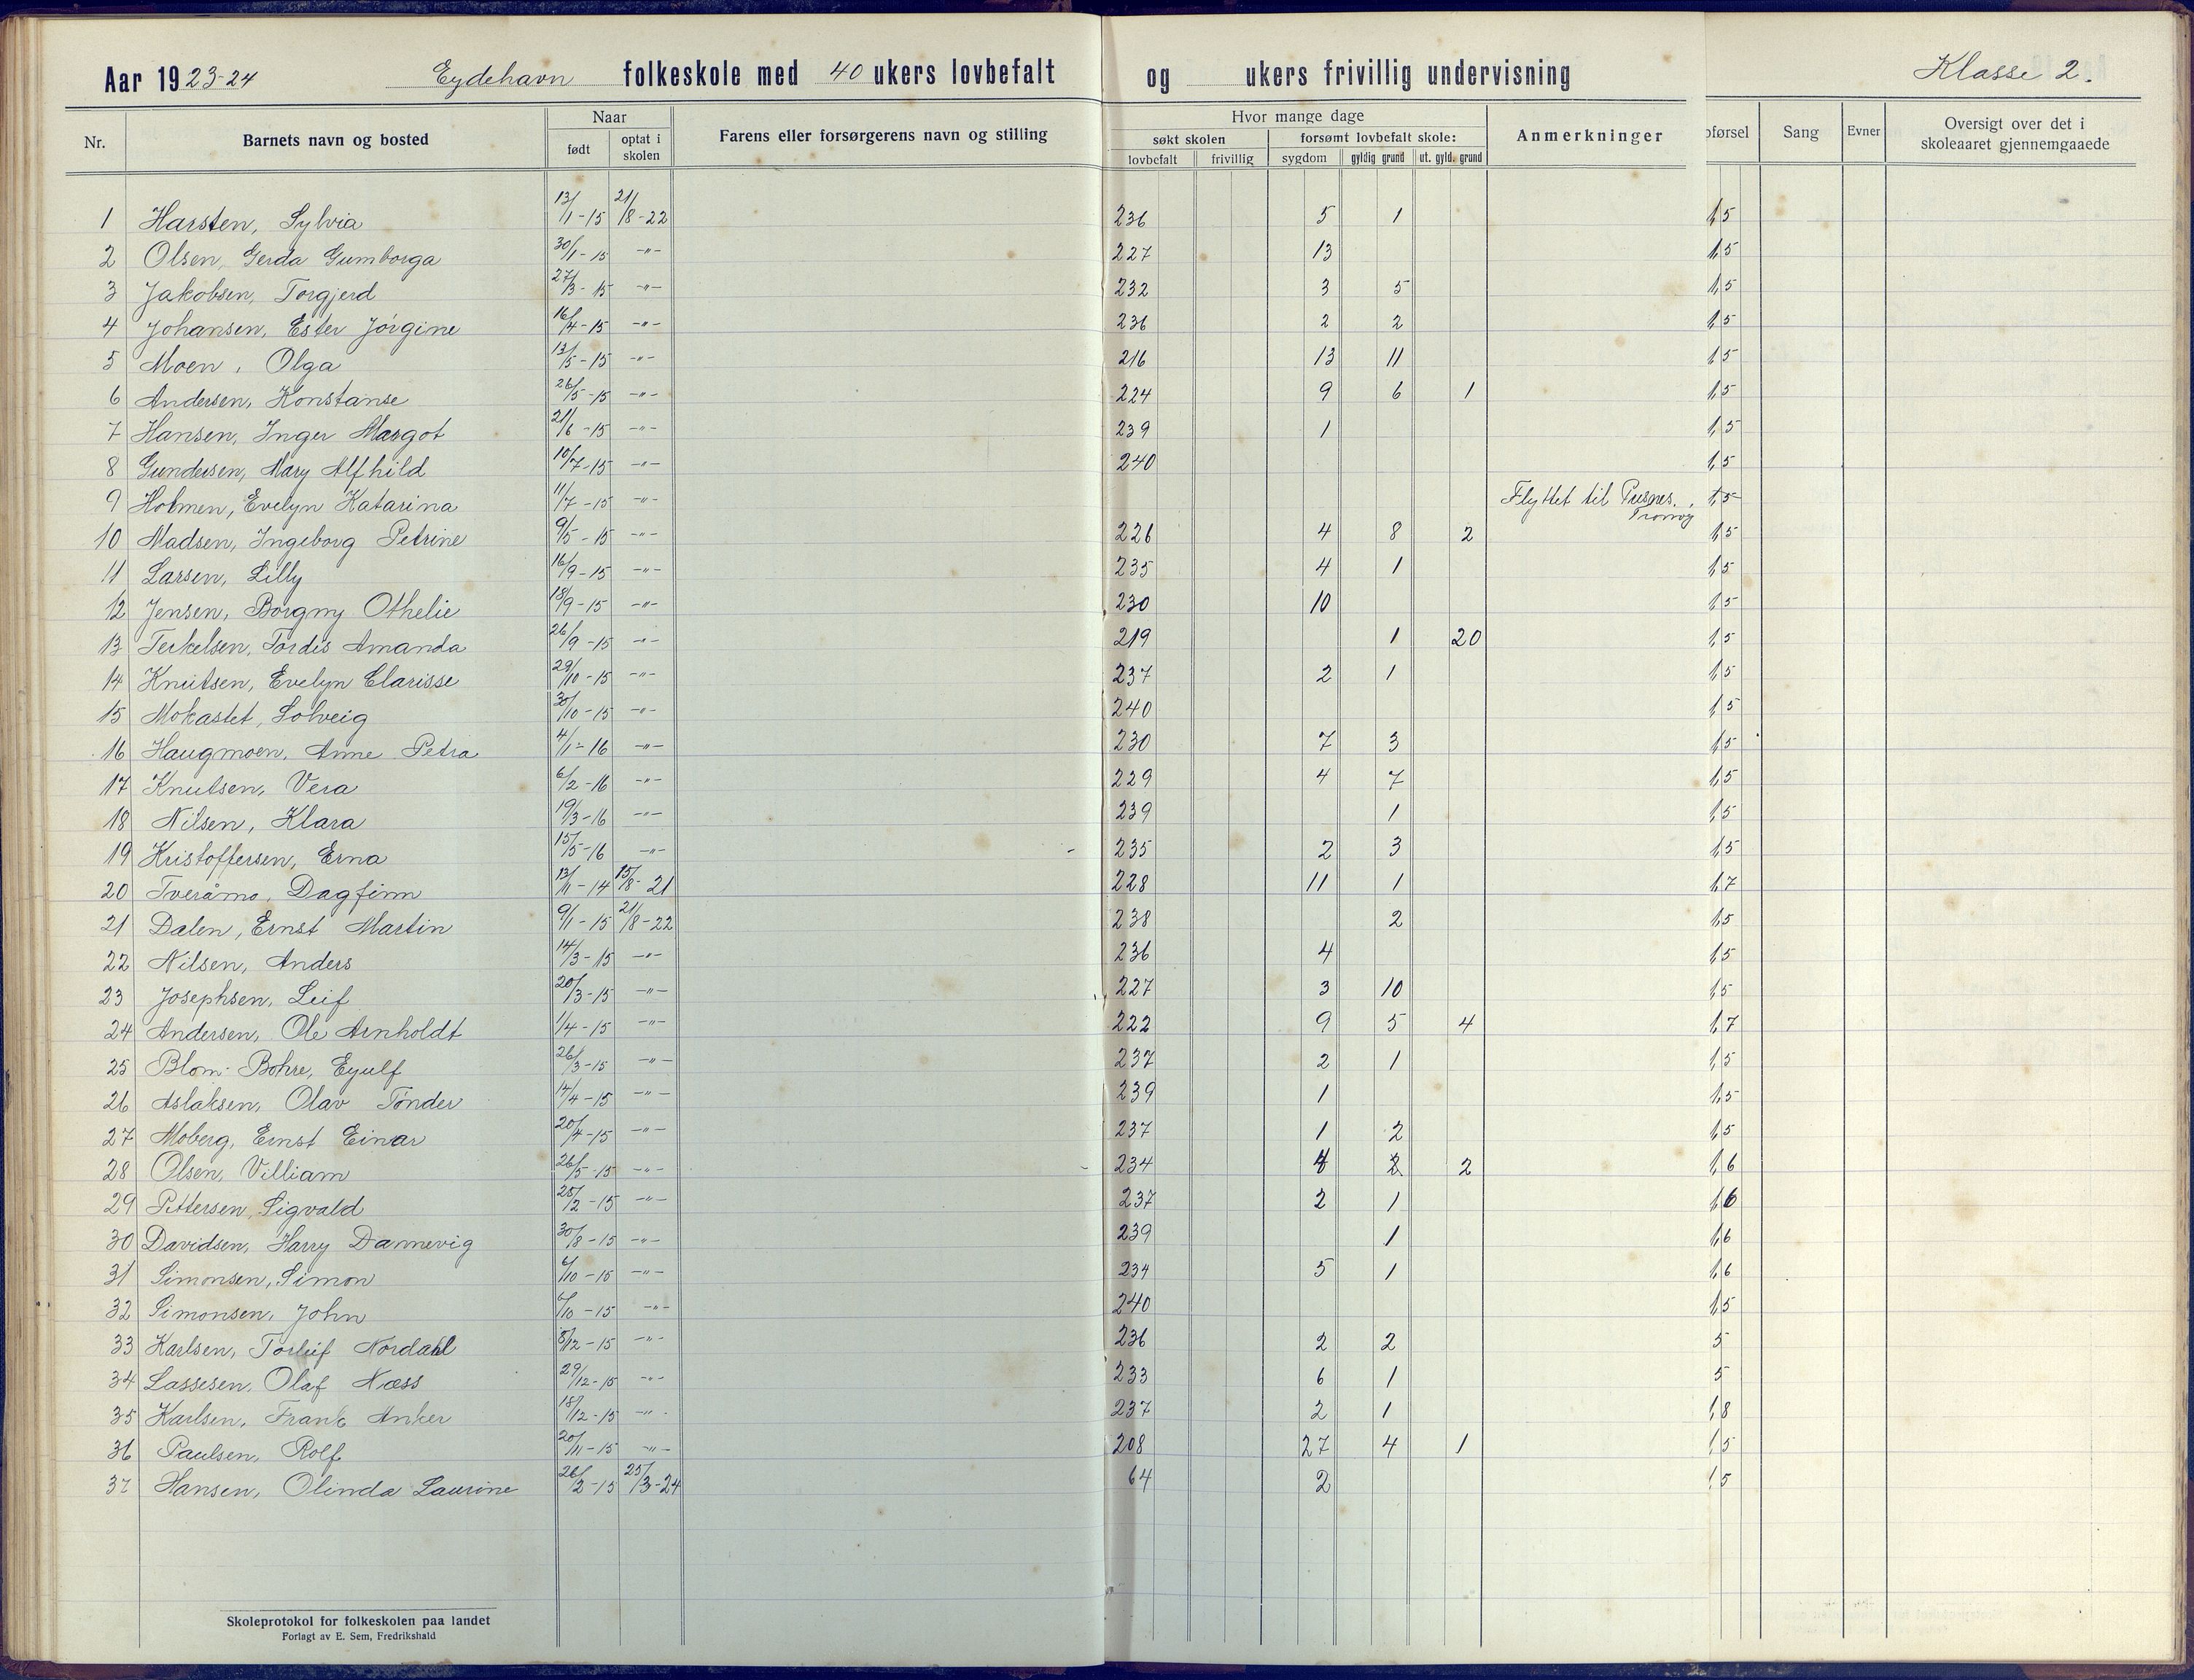 Aar 1923-24 Eydehavn folkeskole med 40 ukers lovbefalt og ukers frivillig undervisning Klasse 2.
Nr. Barnets navn og bosted Naar født optat i skolen Farens eller forsørgerens navn og stilling Hvor mange dage søkt skolen lovbefalt frivillig forsømt lovbefalt skole: sygdom gyldig grund ut. gyld. grund Anmerkninger førsel Sang Evner Oversigt over det i skoleaaret gjennemgaaede
1 Harsten, Sylvia 13/1-15 21/8-22 236 5 1 1,5
2 Olsen, Gerda Gumborga 30/1-15 -"- 227 13 1,5
3 Jakobsen, Torgjerd 27/3-15 -"- 232 3 5 1,5
4 Johansen, Ester Jörgine 16/4-15 -"- 236 2 2 1,5
5 Moen, Olga 13/5-15 -"- 216 13 11 1,5
6 Andersen, Konstanse 26/5-15 -"- 224 9 6 1 1,5
7 Hansen, Inger Margot 21/6-15 -"- 239 1 1,5
8 Gundersen, Mary Alfhild 10/7-15 -"- 240 1,5
9 Holmen, Evelyn Katarina 11/7-15 -"- Flyttet til Pusnes, Tromöy 1,5
10 Madsen, Ingeborg Petrine 9/5-15 -"- 226 4 8 2 1,5
11 Larsen, Lilly 16/9-15 -"- 235 4 1 1,5
12 Jensen, Borgny Othelie 18/9-15 -"- 230 10 1,5
13 Terkelsen, Tordis Amanda 26/9-15 -"- 219 1 20 1,5
14 Knutsen, Evelyn Clarisse 29/10-15 -"- 237 2 1 1,5
15 Mokastet, Solveig 30/10-15 -"- 240 1,5
16 Haugmoen, Anne Petra 4/1-16 -"- 230 7 3 1,5
17 Knutsen, Vera 6/2-16 -"- 229 4 7 1,5
18 Nilsen, Klara 19/3-16 -"- 239 1 1,5
19 Kristoffersen, Erna 15/5-16 -"- 235 2 3 1,5
20 Tveråmo, Dagfinn 13/1-14 15/8-21 228 11 1 1,7
21 Dalen, Ernst Martin 9/1-15 21/8-22 238 2 1,5
22 Nilsen, Anders 14/3-15 -"- 236 4 1,5
23 Josephsen, Leif 20/3-15 -"- 227 3 10 1,5
24 Andersen, Ole Arnholdt 1/4-15 -"- 222 9 5 4 1,7
25 Blom-Bohre, Eyulf 26/3-15 -"- 237 2 1 1,5
26 Aslaksen, Olav Tönder 14/4-15 -"- 239 1 1,5
27 Moberg, Ernst Einar 20/4-15 -"- 237 1 2 1,5
28 Olsen, Villiam 26/5-15 -"- 234 4 2 2 1,6
29 Pettersen, Sigvald 25/2-15 -"- 237 2 1 1,6
30 Davidsen, Harry Dannevig 30/8-15 -"- 239 1 1,6
31 Simonsen, Simon 6/10-15 -"- 234 5 1 1,6
32 Simonsen, John 6/10-15 -"- 240 1,5
33 Karlsen, Torleif Nordahl 8/12-15 -"- 236 2 2 5
34 Lassesen, Olaf Næss 29/12-15 -"- 233 6 1 5
35 Karlsen, Frank Anker 18/12-15 -"- 237 2 1 1,8
36 Paulsen, Rolf 20/11-15 -"- 208 27 4 1 1,5
37 Hansen, Olinda Laurine 26/2-15 25/3-24 64 2 1,5
Skoleprotokol for folkeskolen paa landet
Forlagt av E. Sem, Fredrikshald